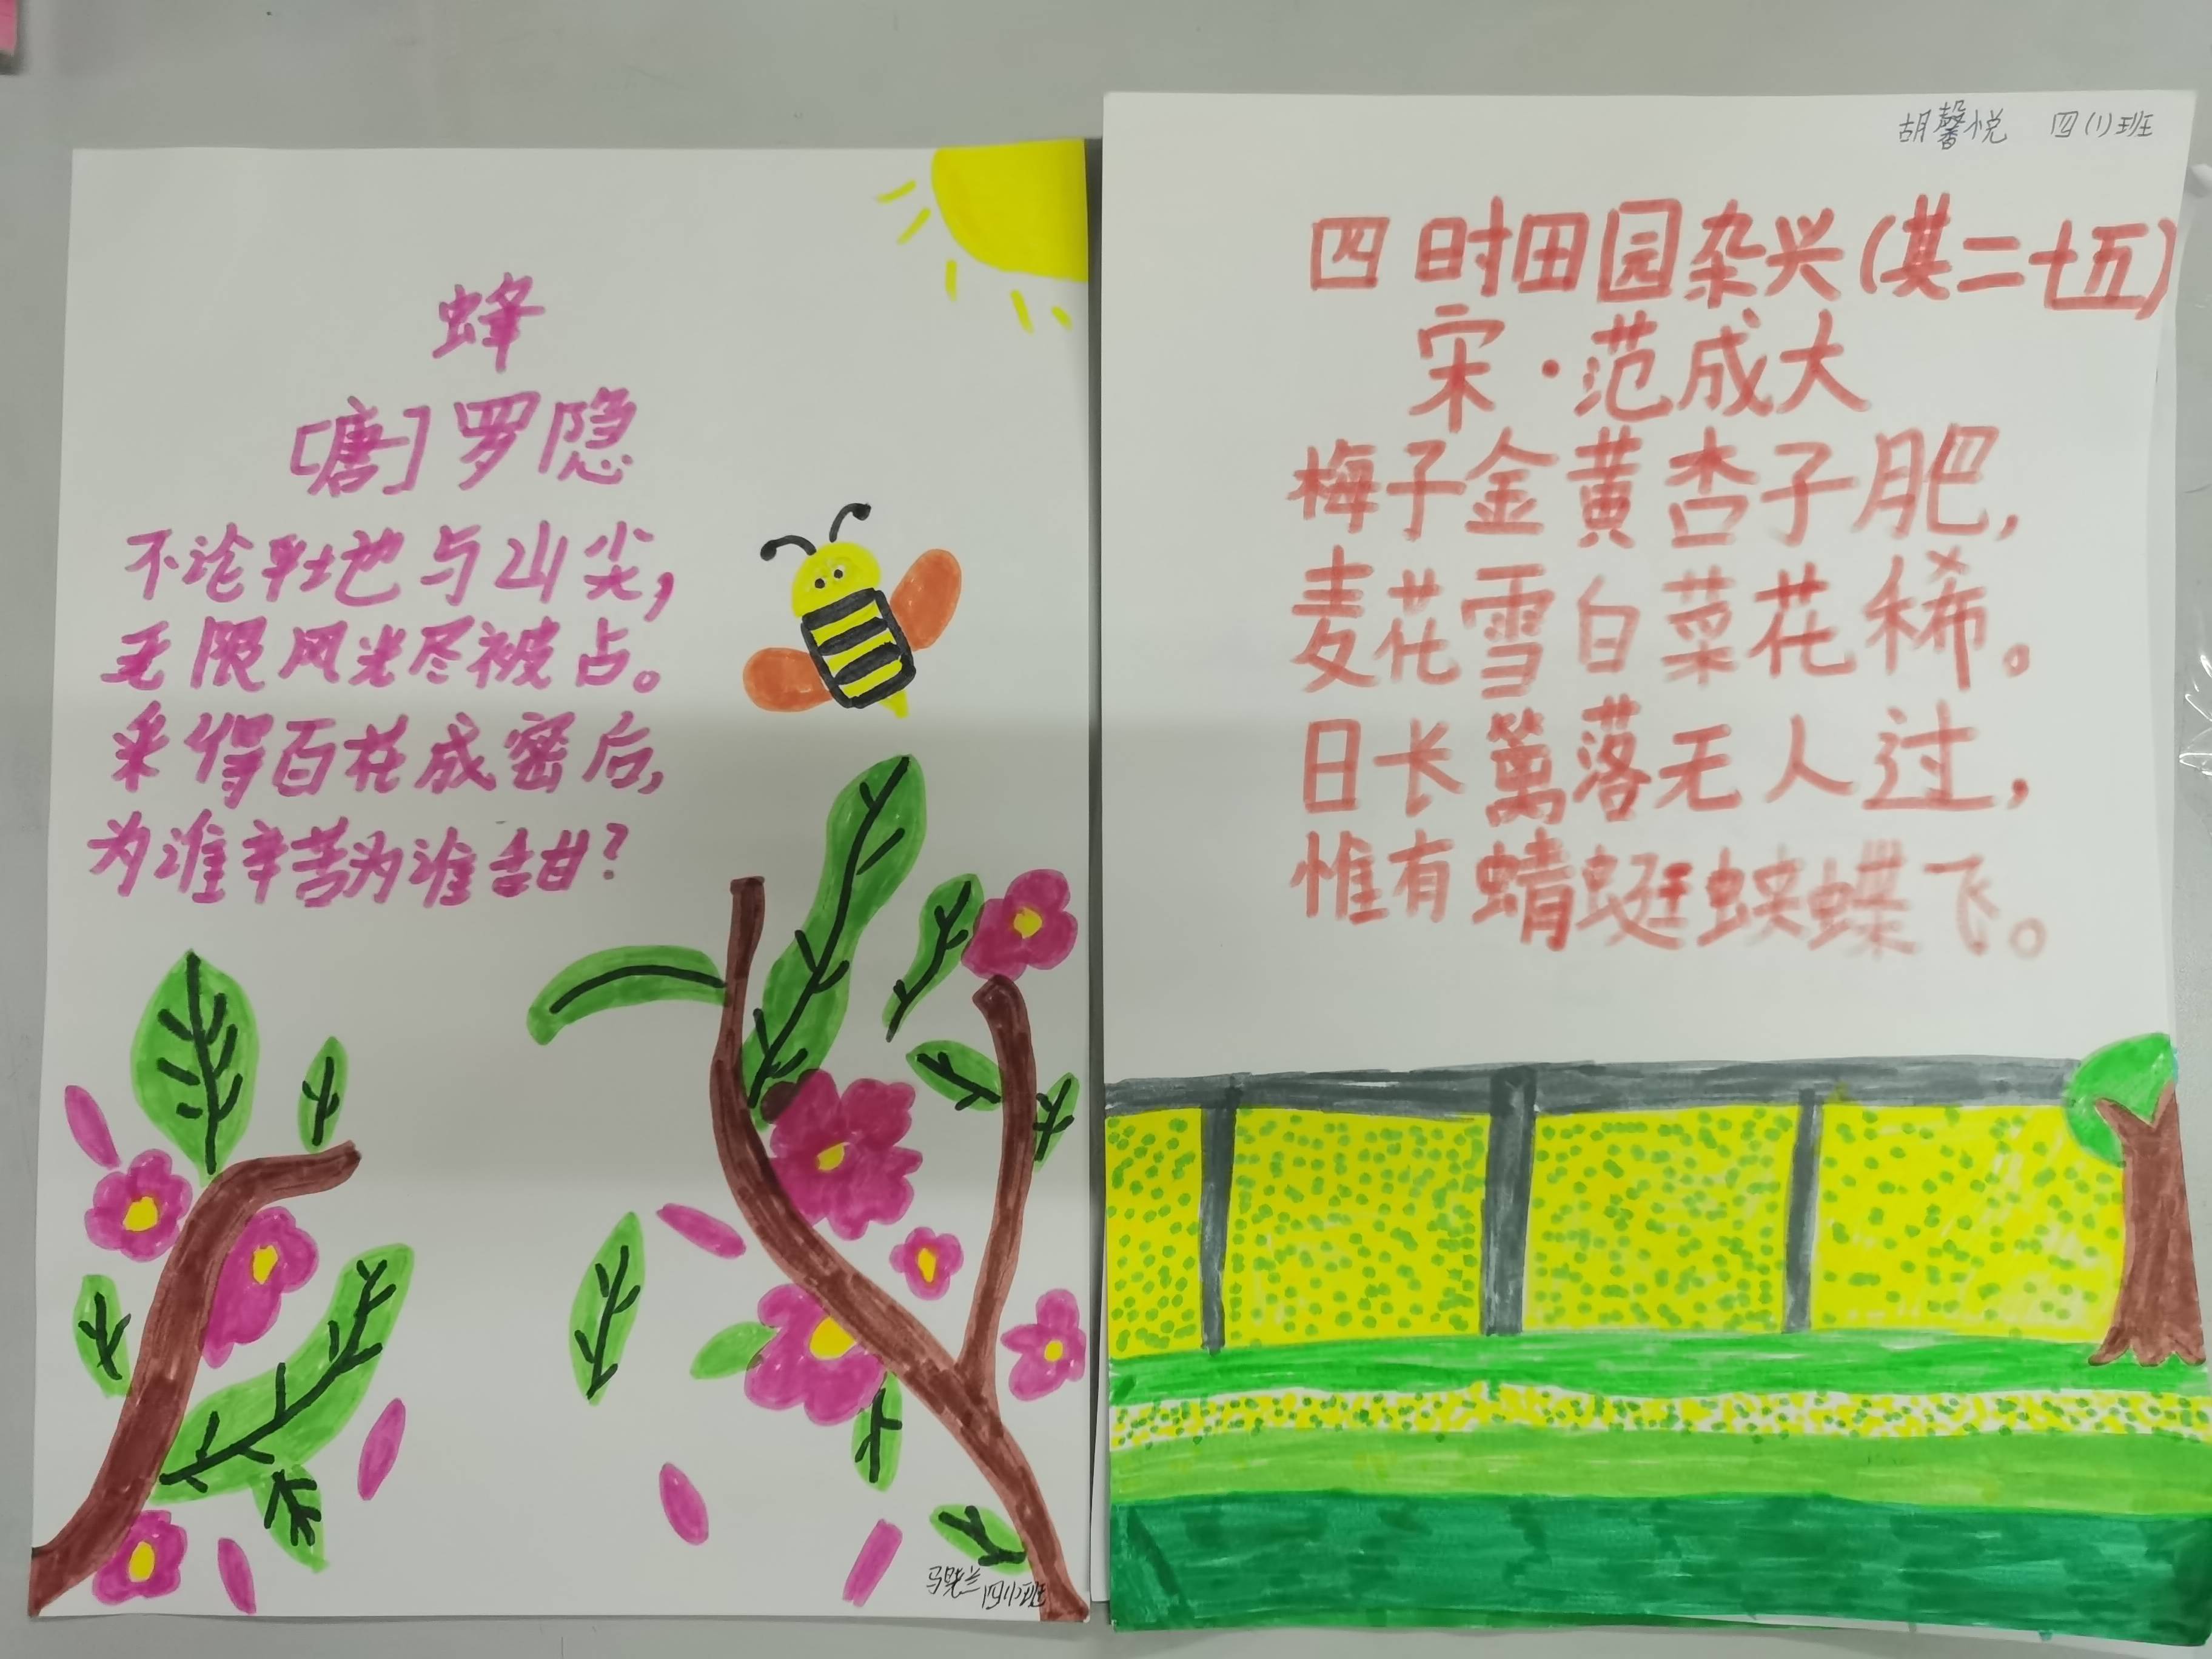 蜂
[唐]罗隐
不论平地与山尖，
无限风光尽被占。
采得百花成密后，
为谁辛苦为谁甜？
四(1)班
胡馨悦 四(1)班
四时田园杂兴(其二十五)
宋·范成大
梅子金黄杏子肥，
麦花雪白菜花稀。
日长篱落无人过，
惟有蜻蜓蛱蝶飞。